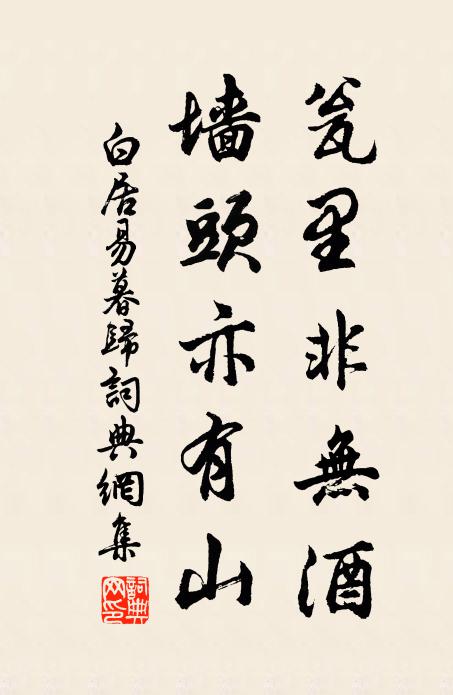 瓮里非無酒
墙頭亦有山
白居易暮歸詞典網集
詞典网印